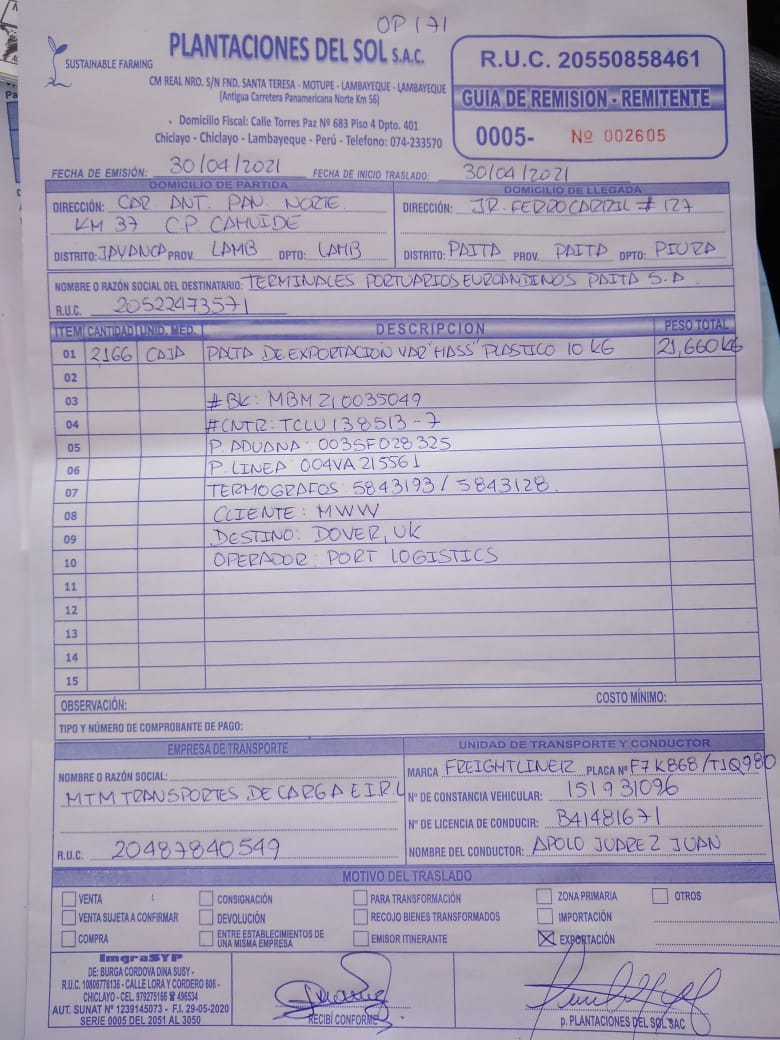 OP 171
SUSTAINABLE FARMING
PLANTACIONES DEL SOL S.A.C.
CM REAL NRO. S/N FND. SANTA TERESA - MOTUPE - LAMBAYEQUE - LAMBAYEQUE
(Antigua Carretera Panamericana Norte Km 56)
Domicilio Fiscal: Calle Torres Paz Nº 683 Piso 4 Dpto. 401
Chiclayo - Chiclayo - Lambayeque - Perú - Telefono: 074-233570
R.U.C. 20550858461
GUIA DE REMISION - REMITENTE
0005- Nº 002605
FECHA DE EMISIÓN: 30/04/2021 FECHA DE INICIO TRASLADO: 30/04/2021
DOMICILIO DE PARTIDA
DIRECCIÓN: CAR. ANT. PAN. NORTE
KM 37 C.P. CAHUIDE
DISTRITO: JAYANCA PROV. LAMB DPTO: LAMB
DOMICILIO DE LLEGADA
DIRECCIÓN: JR. FERROCARRIL # 127
DISTRITO: PAITA PROV. PAITA DPTO: PIURA
NOMBRE O RAZÓN SOCIAL DEL DESTINATARIO: TERMINALES PORTUARIOS EUROANDINOS PAITA S.A
R.U.C. 20522473571
ITEM CANTIDAD UNID. MED. DESCRIPCION PESO TOTAL
01 2166 CAJA PALTA DE EXPORTACION VAR "HASS" PLASTICO 10 KG 21,660 KG
02
03 #BK: MBM210035049
04 #CNTR: TCLU 138513-7
05 P. ADUANA: 003SF028325
06 P. LINEA: 004VA215561
07 TERMOGRAFOS: 5843193 / 5843128.
08 CLIENTE: MWW
09 DESTINO: DOVER, UK
10 OPERADOR: PORT LOGISTICS
11
12
13
14
15
OBSERVACIÓN: COSTO MÍNIMO:
TIPO Y NÚMERO DE COMPROBANTE DE PAGO:
EMPRESA DE TRANSPORTE
NOMBRE O RAZÓN SOCIAL:
MTM TRANSPORTES DE CARGA E.I.R.L
R.U.C. 20487840549
UNIDAD DE TRANSPORTE Y CONDUCTOR
MARCA FREIGHTLINER PLACA Nº F7K868/T1Q980
Nº DE CONSTANCIA VEHICULAR: 151931096
Nº DE LICENCIA DE CONDUCIR: B41481671
NOMBRE DEL CONDUCTOR: APOLO JUAREZ JUAN
MOTIVO DEL TRASLADO
VENTA CONSIGNACIÓN PARA TRANSFORMACIÓN ZONA PRIMARIA OTROS
VENTA SUJETA A CONFIRMAR DEVOLUCIÓN RECOJO BIENES TRANSFORMADOS IMPORTACIÓN
COMPRA ENTRE ESTABLECIMIENTOS DE UNA MISMA EMPRESA EMISOR ITINERANTE EXPORTACIÓN
ImgraSYP
DE: BURGA CORDOVA DINA SUSY -
R.U.C. 10806776136 - CALLE LORA Y CORDERO 806 -
CHICLAYO - CEL. 979275166 ☎ 496534
AUT. SUNAT Nº 1239145073 - F.I. 29-05-2020
SERIE 0005 DEL 2051 AL 3050
RECIBÍ CONFORME
p. PLANTACIONES DEL SOL SAC